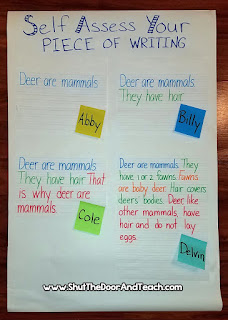 Self Assess Your
PIECE OF WRITING
Deer are mammals.
Abby
Deer are mammals.
They have hair.
Billy
Deer are mammals.
They have hair. That
is why deer are
mammals.
Cole
Deer are mammals. They
have 1 or 2 fawns. Fawns
are baby deer. Hair covers
deer's bodies. Deer like
other mammals, have
hair and do not lay
eggs.
Delvin
www.ShutTheDoorAndTeach.com